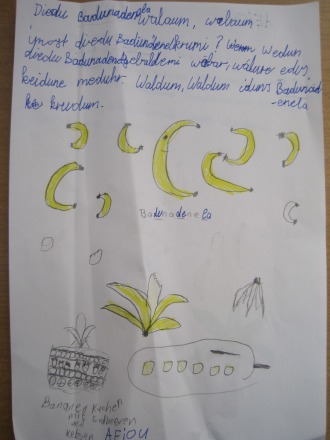 Diedu Badunadenela walaum, walaum
ynost diedu Badundenelkrumi? Wedum
diedu Badunadendsebaldemi wabar, waluve edis,
keidune meduhr Waldum, Waldum iduns Badunad
-enela
krudum.
Badunadenela
Bananen Kuchen
mit
und Erdbeeren
Kerzen AEIOU